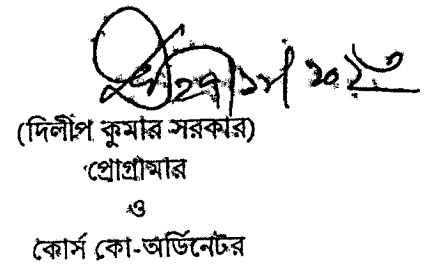 (দিলীপ কুমার সরকার)
প্রোগ্রামার
ও
কোর্স কো-অর্ডিনেটর